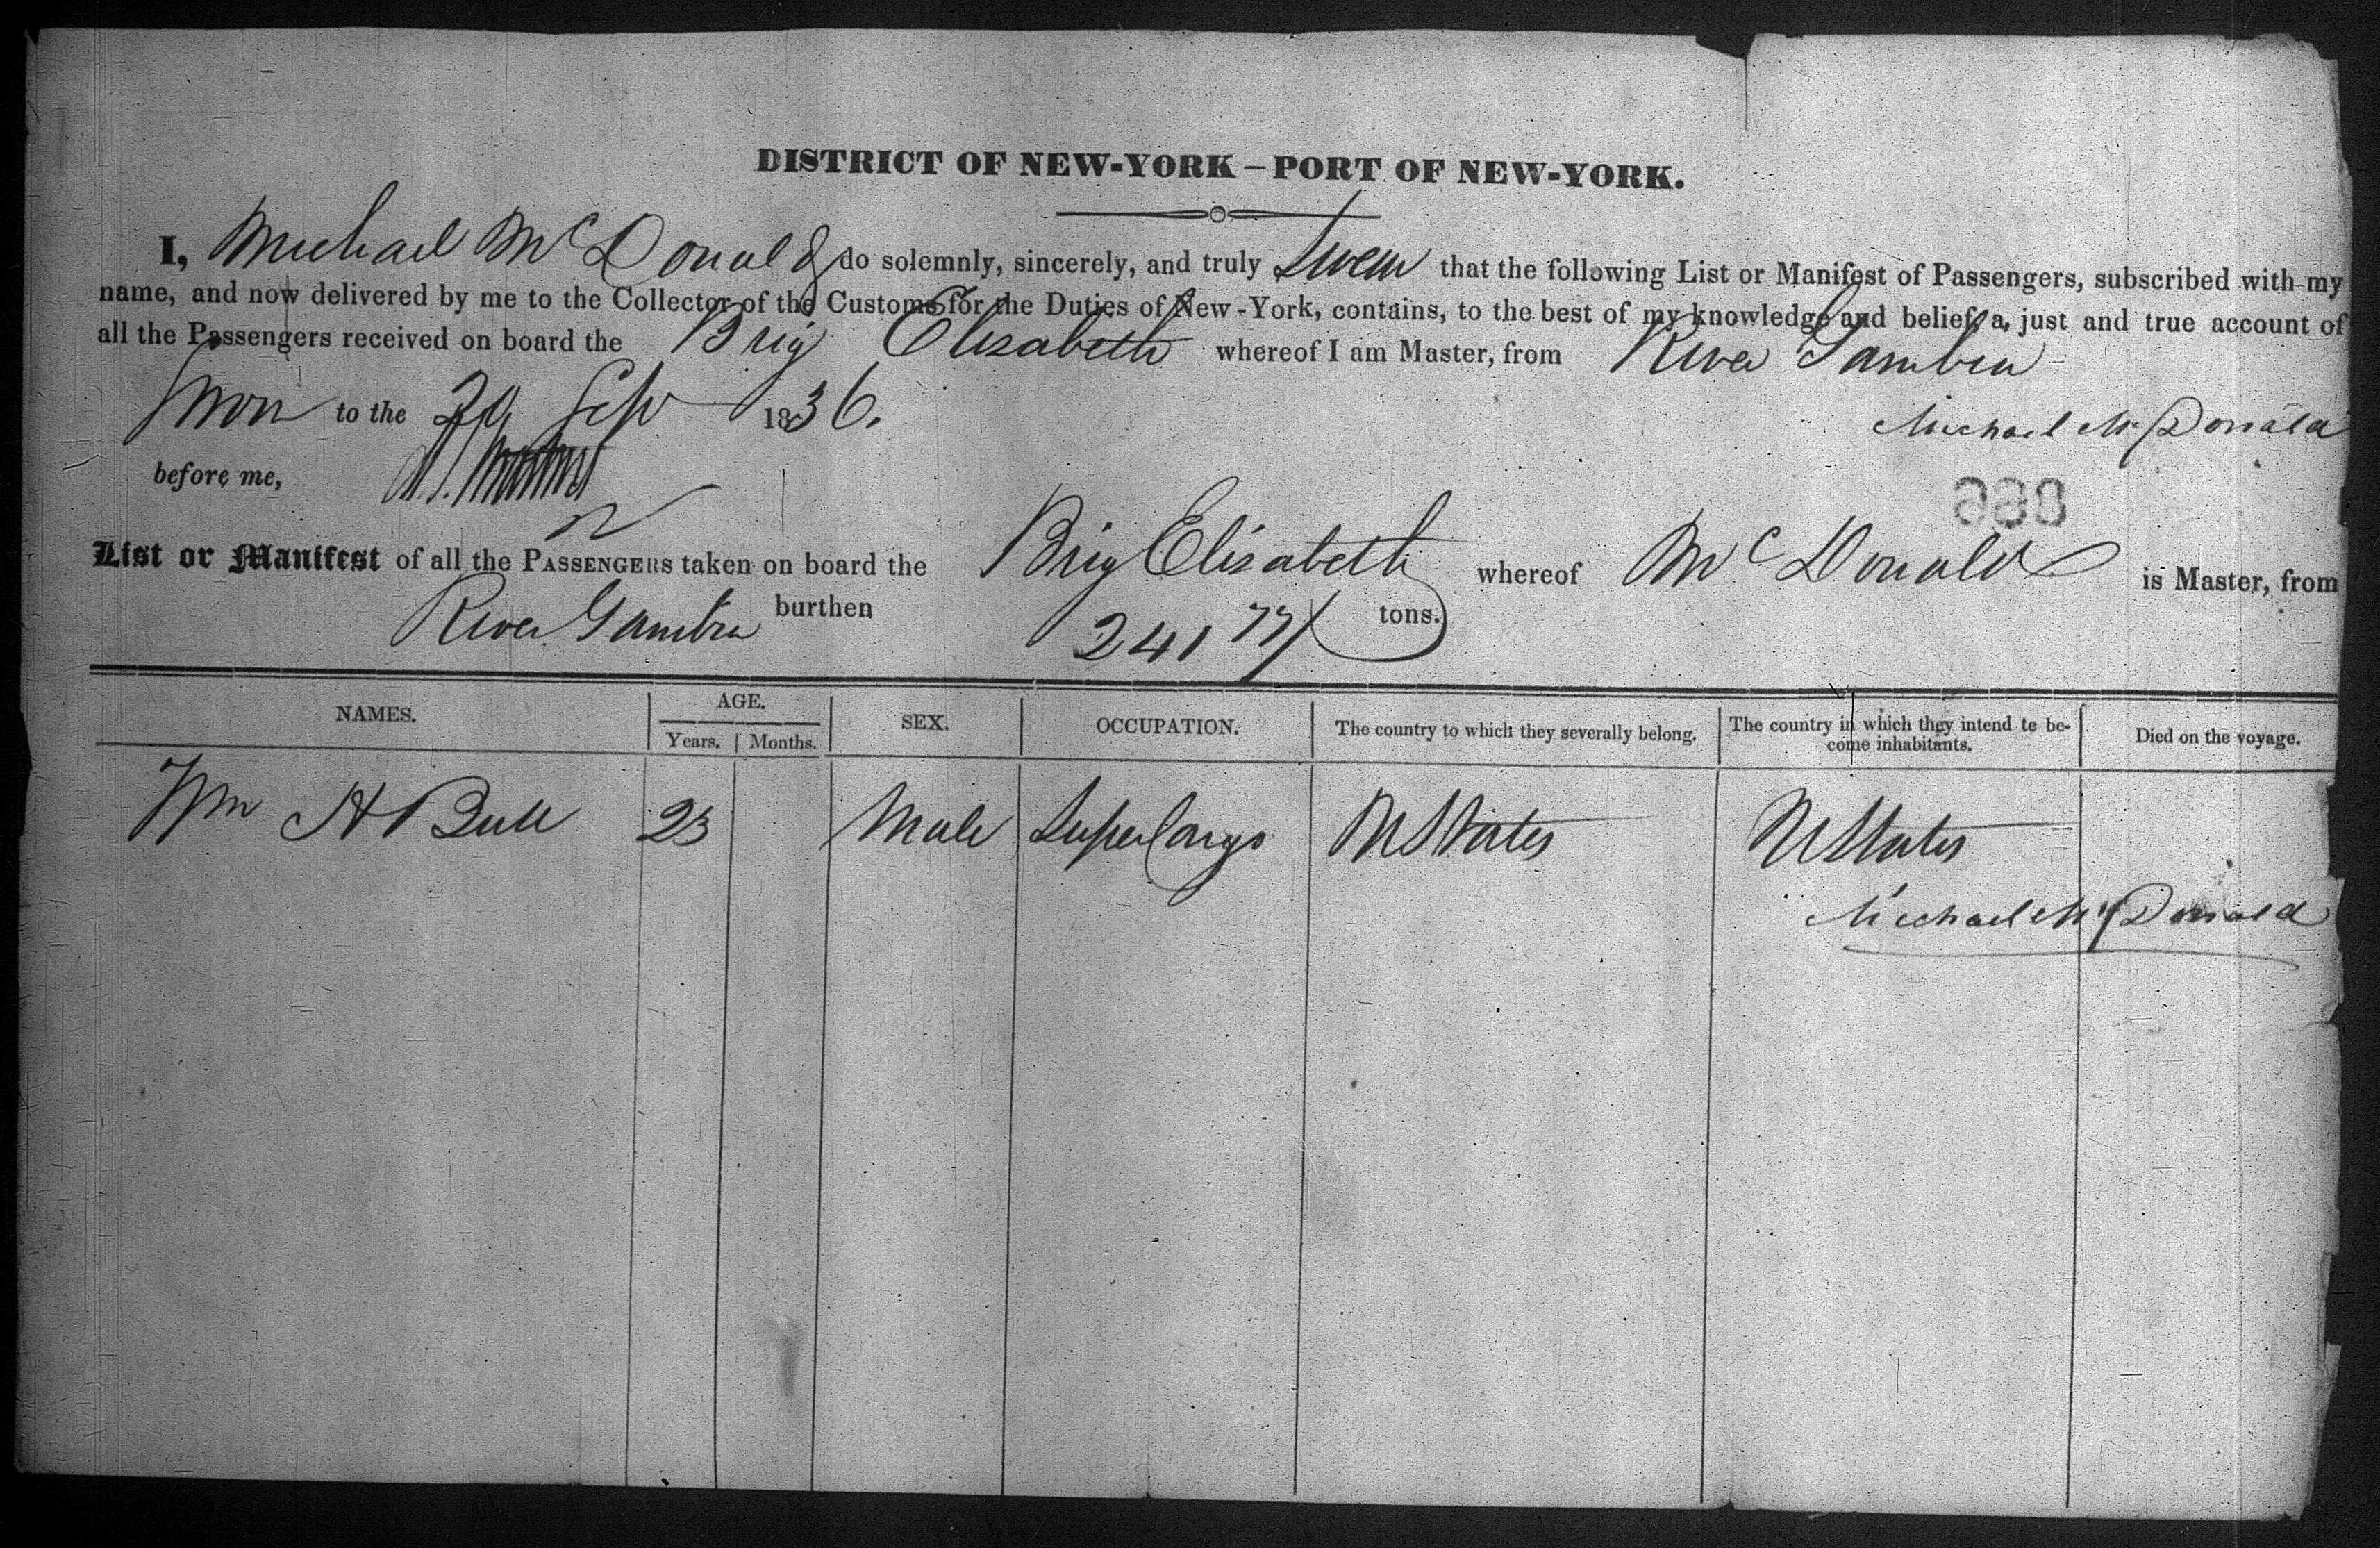 DISTRICT OF NEW-YORK – PORT OF NEW-YORK.
I, Michael McDonald do solemnly, sincerely, and truly Swear that the following List or Manifest of Passengers, subscribed with my
name, and now delivered by me to the Collector of the Customs for the Duties of New-York, contains, to the best of my knowledge and belief, a just and true account of
all the Passengers received on board the Brig Elizabeth whereof I am Master, from River Gambia
Sworn to the 20 Sep 1836.
Michael McDonald
before me,
List or Manifest of all the PASSENGERS taken on board the Brig Elisabeth whereof McDonald is Master, from
River Gambia burthen 241 77/ tons.
NAMES. AGE. SEX. OCCUPATION. The country to which they severally belong. The country in which they intend te be-
come inhabitants. Died on the voyage.
Years. Months.
Wm H Bull 23 Male SuperCargo U States U States
Michael McDonald